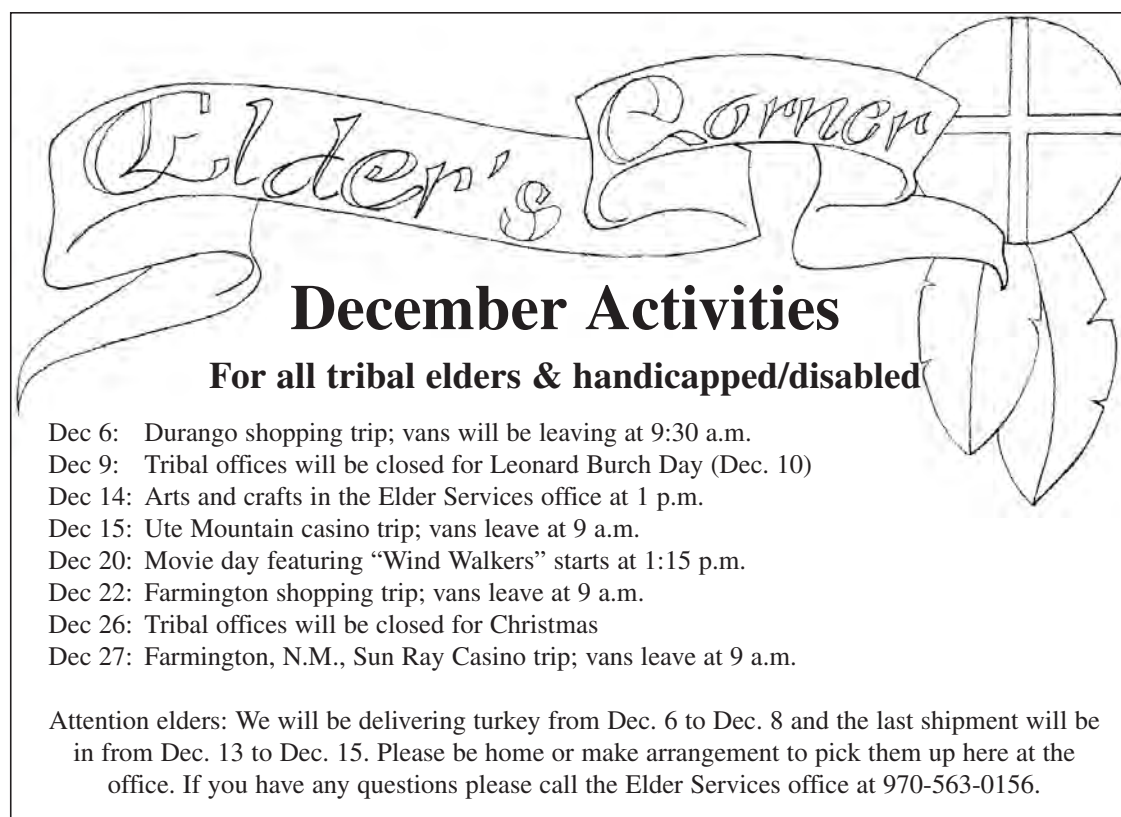 Elder's Corner
December Activities
For all tribal elders & handicapped/disabled
Dec 6: Durango shopping trip; vans will be leaving at 9:30 a.m.
Dec 9: Tribal offices will be closed for Leonard Burch Day (Dec. 10)
Dec 14: Arts and crafts in the Elder Services office at 1 p.m.
Dec 15: Ute Mountain casino trip; vans leave at 9 a.m.
Dec 20: Movie day featuring “Wind Walkers” starts at 1:15 p.m.
Dec 22: Farmington shopping trip; vans leave at 9 a.m.
Dec 26: Tribal offices will be closed for Christmas
Dec 27: Farmington, N.M., Sun Ray Casino trip; vans leave at 9 a.m.
Attention elders: We will be delivering turkey from Dec. 6 to Dec. 8 and the last shipment will be
in from Dec. 13 to Dec. 15. Please be home or make arrangement to pick them up here at the
office. If you have any questions please call the Elder Services office at 970-563-0156.